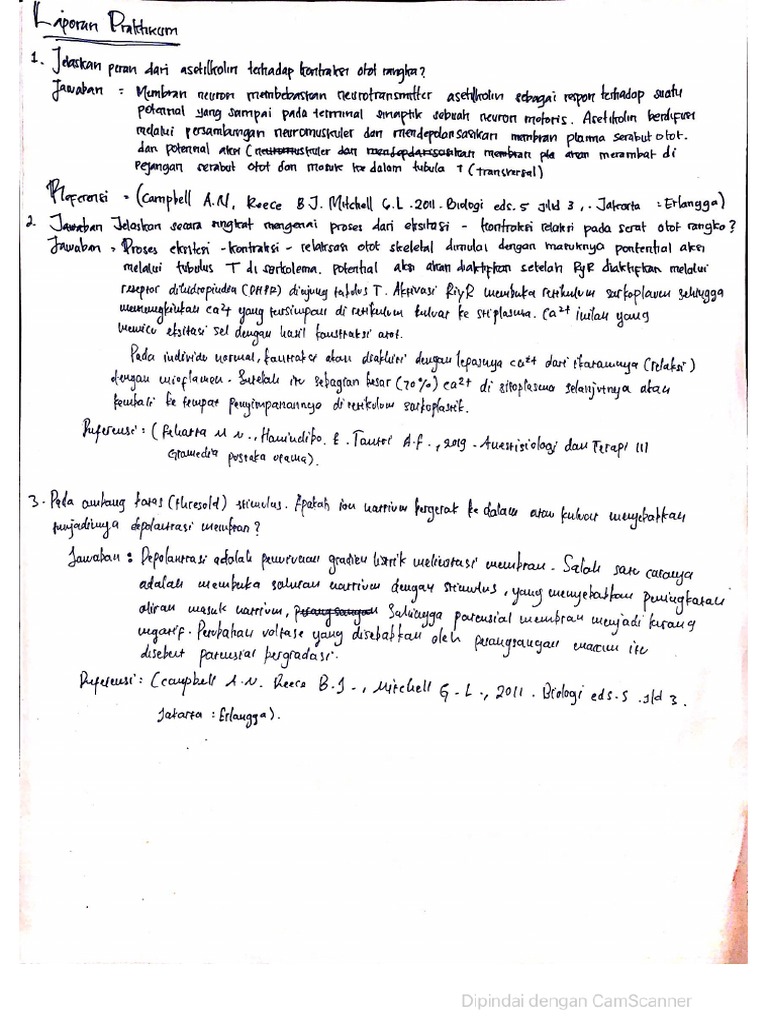 Laporan Praktikum
1. Jelaskan peran dari asetilkolin terhadap kontraksi otot rangka?
Jawaban = Membran neuron membebaskan neurotransmitter asetilkolin sebagai respon terhadap suatu
potensial yang sampai pada terminal sinaptik sebuah neuron motoris. Asetilkolin berdifusi
melalui persambungan neuromuskuler dan mendepolarisasikan membran plasma serabut otot.
dan potensial aksi (neuromuskuler dan mendepolarisasikan membran pla akan merambat di
pejangan serabut otot dan masuk ke dalam tubula T (transversal)
Referensi = (Campbell A.N, Reece B.J. Mitchell G.L. 2011. Biologi eds. 5 jild 3,. Jakarta : Erlangga)
2. Jawaban Jelaskan secara singkat mengenai proses dari eksitasi - kontraksi relaksi pada serat otot rangka?
Jawaban = Proses eksitasi - kontraksi - relaksasi otot skeletal dimulai dengan masuknya pontential aksi
melalui tubulus T di sarkolema. potential aksi akan diaktifkan setelah RyR diaktifkan melalui
reseptor dihidropiridea (DHPR) diujung tubulus T. Aktivasi RiyR membuka retikulum sarkoplasen sehingga
memungkinkan Ca2+ yang tersimpan di retikulum keluar ke sitiplasma. Ca2+ inilah yang
memicu eksitasi sel dengan hasil konstraksi otot.
Pada individu normal, kontraksi akan diakhiri dengan lepasnya Ca2+ dari ikatannya (relaksi)
dengan miofilamen. Setelah itu sebagian besar (70%) Ca2+ di sitoplasma selanjutnya akan
kembali ke tempat penyimpanannya di retikulum sarkoplastik.
Referensi : ( M.N., E. Tantri A.F., 2019. Anestisiologi dan Terapi III
Gramedia pustaka utama).
3. Pada ambang batas (thresold) stimulus. Apakah ion natrium bergerak ke dalam atau keluar menyebabkan
terjadinya depolarisasi membran?
Jawaban : Depolarisasi adalah penurunan gradien listrik melintasi membran. Salah satu caranya
adalah membuka saluran natrium dengan stimulus, yang menyebabkan peningkatan
aliran masuk natrium, perangsangan Sehingga potensial membran menjadi kurang
negatif. Perubahan voltase yang disebabkan oleh perangsangan macam itu
disebut potensial bergradasi.
Referensi : (Campbell A.N. Reece B.J., Mitchell G.L., 2011. Biologi eds. 5 .jld 3.
Jakarta : Erlangga).
Dipindai dengan CamScanner